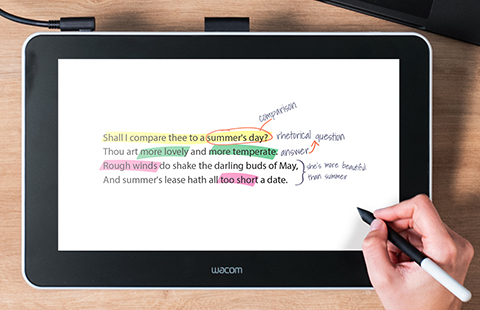 comparison
Shall I compare thee to a summer's day? rhetorical question
Thou art more lovely and more temperate: answer
Rough winds do shake the darling buds of May, she's more beautiful
And summer's lease hath all too short a date. than summer
wacom